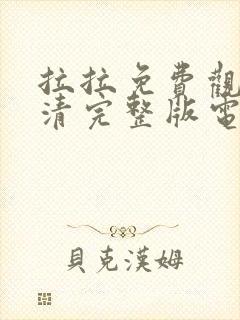 拉拉免費觀
清完整版電
貝克漢姆